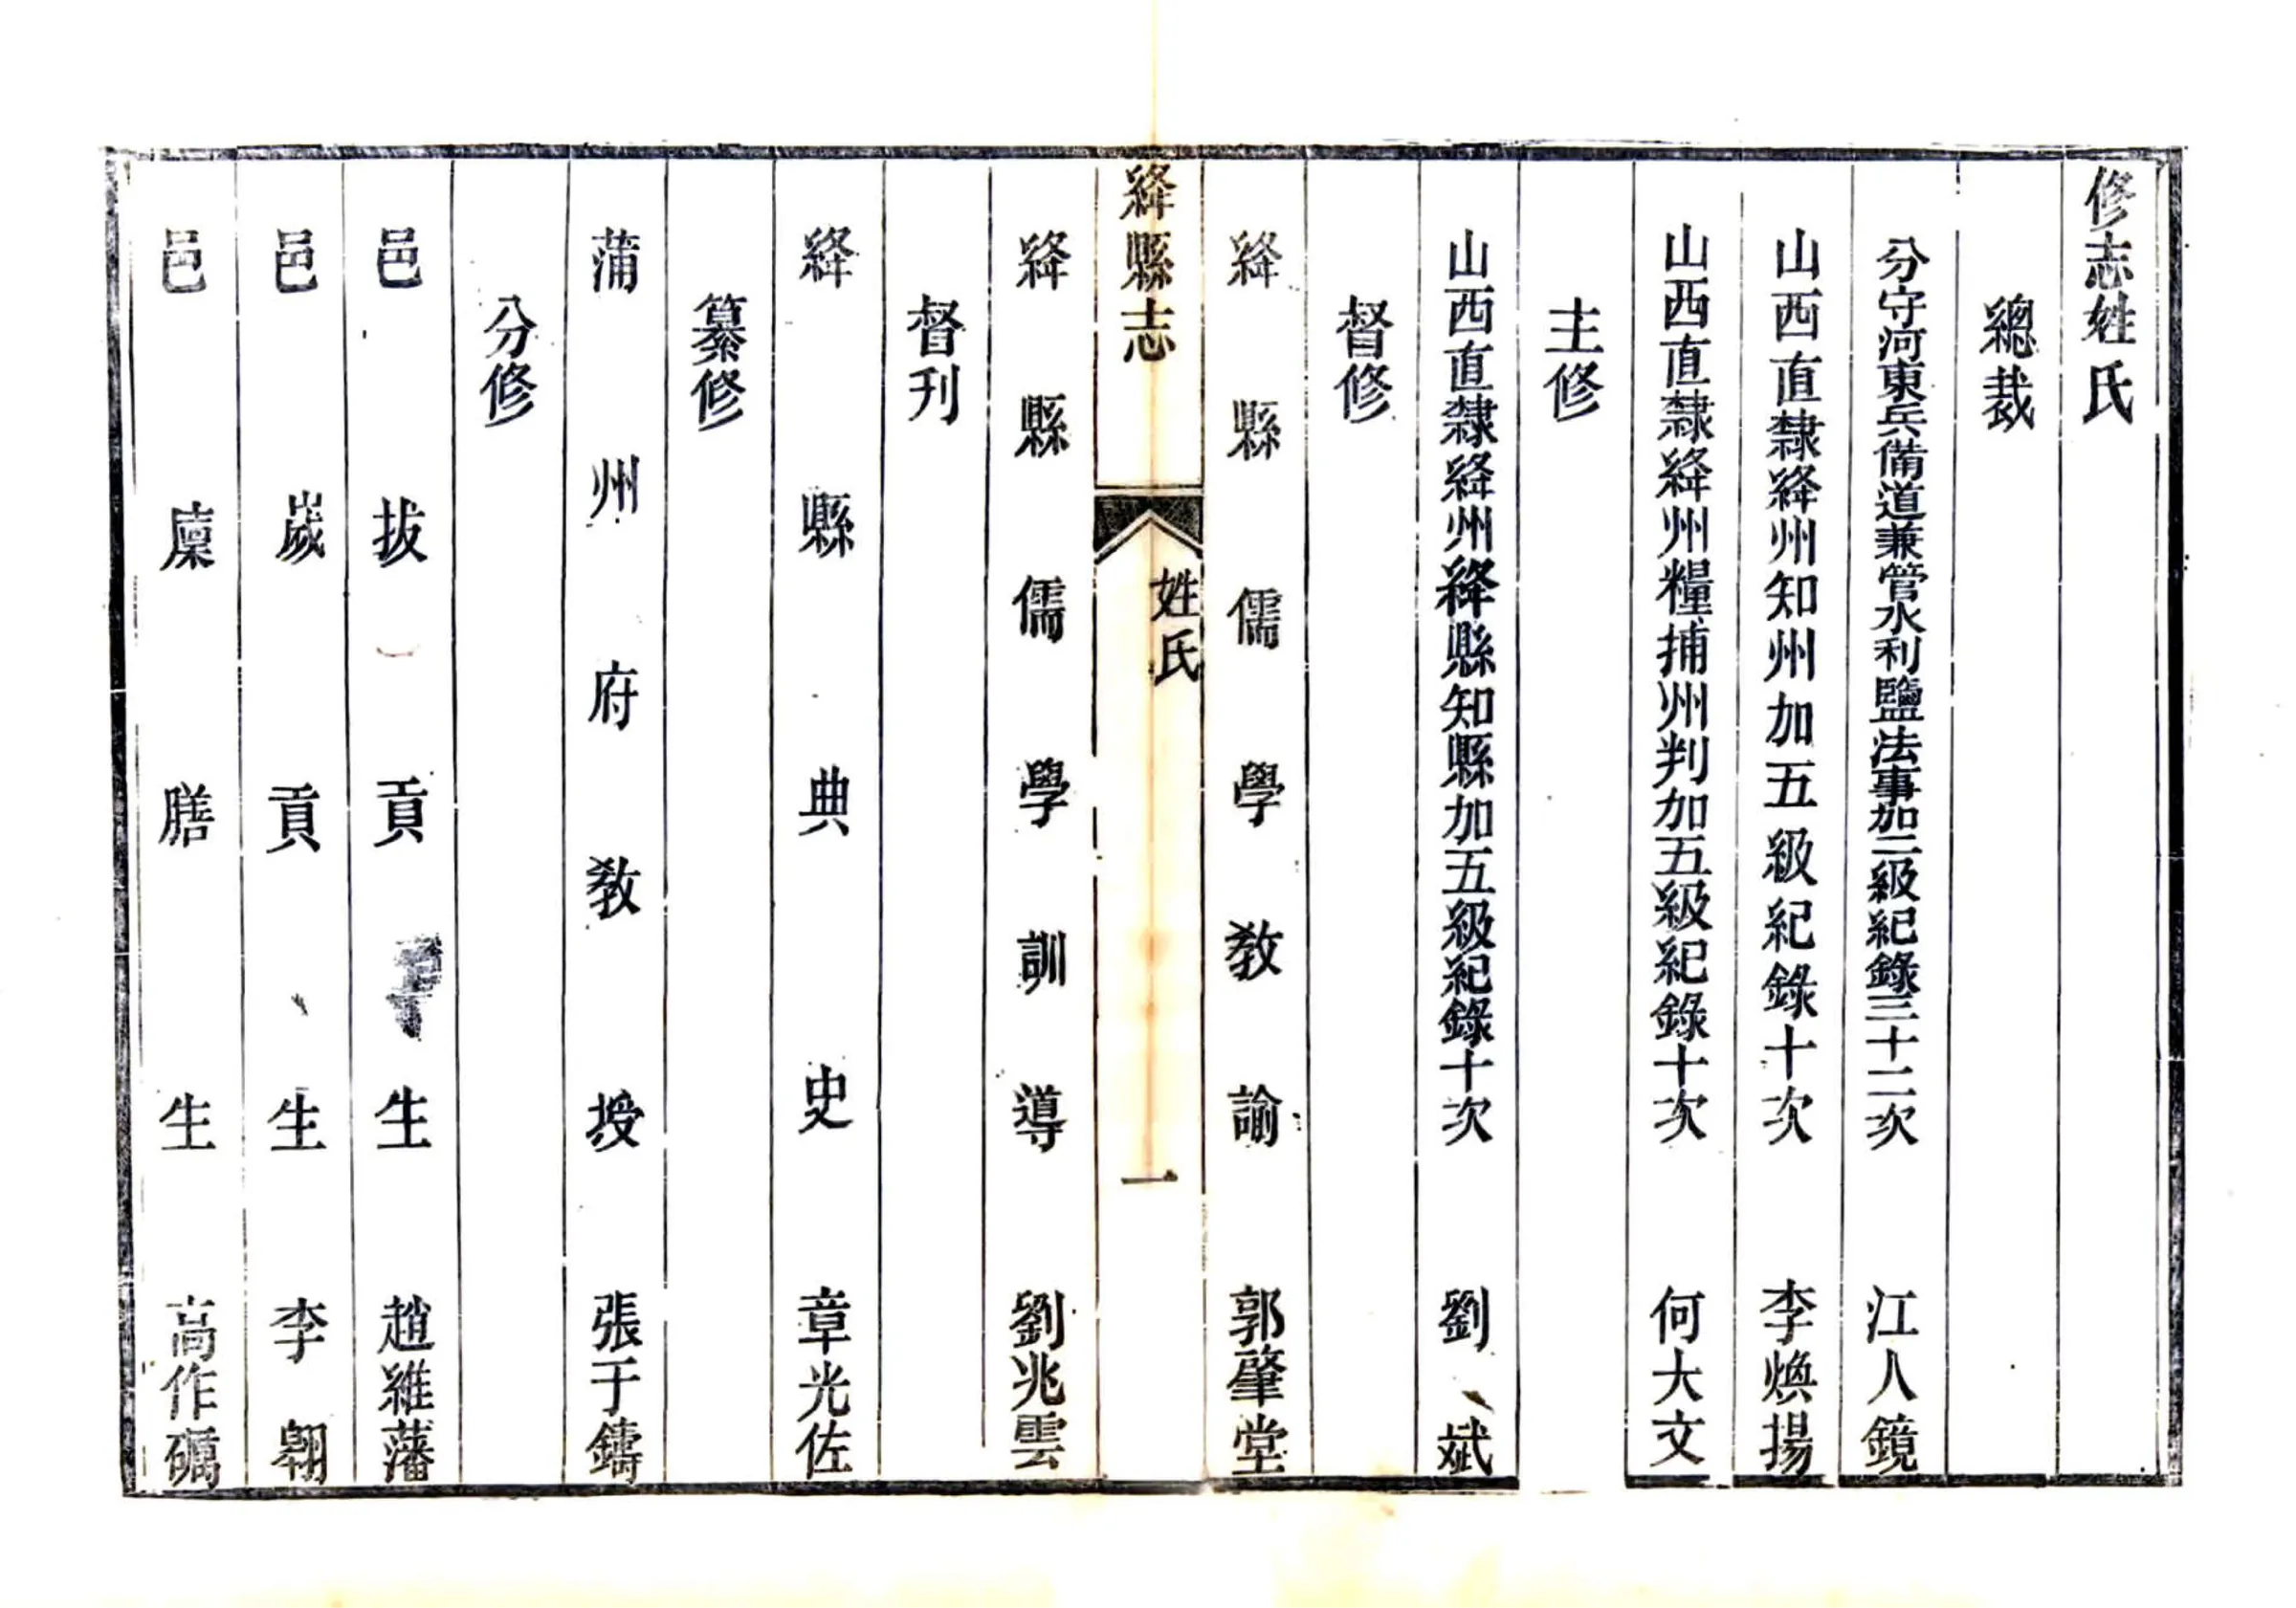 修志姓氏
總裁
分守河東兵備道兼管水利鹽法事加二級紀錄三十二次 江人鏡
山西直隸絳州知州加五級紀錄十次 李煥揚
山西直隸絳州糧捕州判加五級紀錄十次 何大文
主修
山西直隸絳州絳縣知縣加五級紀錄十次 劉斌
督修
絳縣儒學教諭 郭肇堂
絳縣志 姓氏 一
絳縣儒學訓導 劉兆雲
督刊
絳縣典史 章光佐
纂修
蒲州府教授 張于鑄
分修
邑拔貢生 趙維藩
邑歲貢生 李翱
邑廩膳生 高作礪